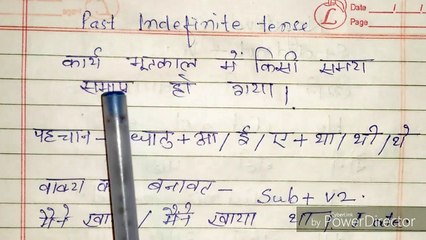 Date
Page
Past Indefinite tense
कार्य भूतकाल में किसी समय
समाप्त हो गया।
पहचान - + आ / ई / ए + था / थी / थे
वाक्य बनावट - Sub + V2.
मैंने खाया / मैंने खाया था
PowerDirector